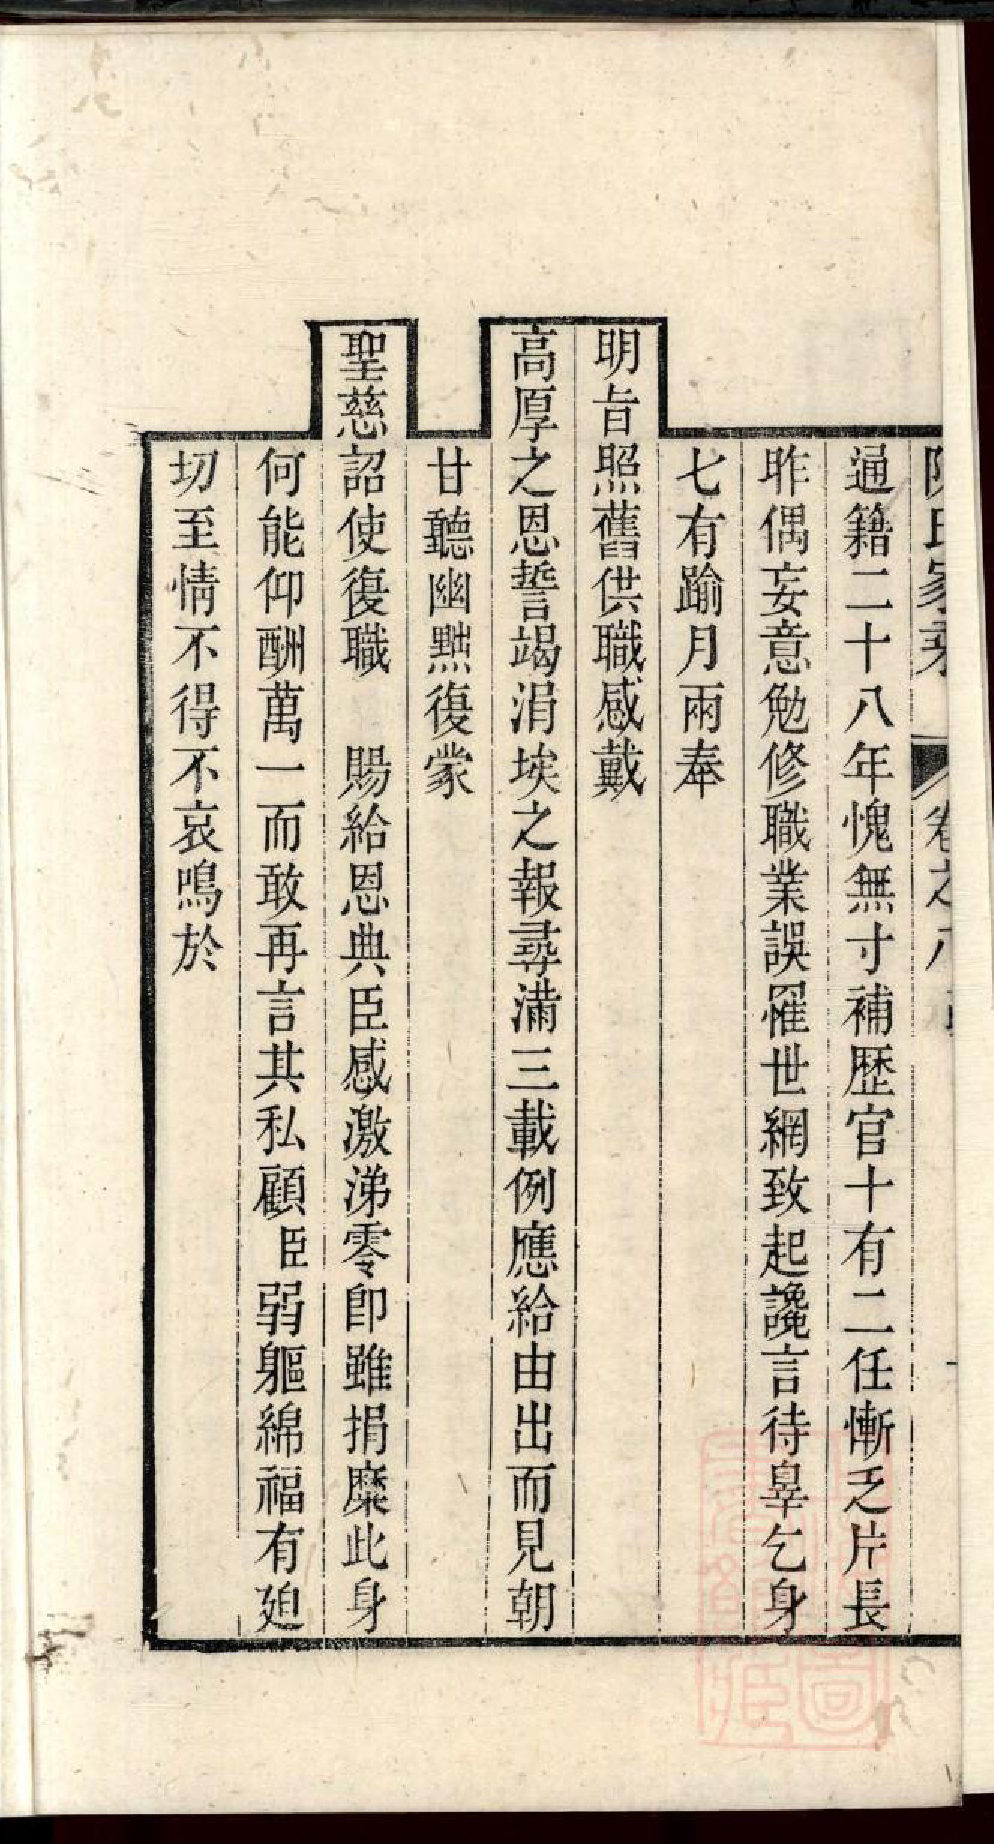 陳氏家乘 卷之八
通籍二十八年愧無寸補歷官十有二任慚乏片長
昨偶妄意勉修職業誤罹世網致起讒言待辠乞身
七有踰月兩奉
明旨照舊供職感戴
高厚之恩誓竭涓埃之報尋滿三載例應給由出而見朝
甘聽幽黜復蒙
聖慈詔使復職 賜給恩典臣感激涕零卽雖捐糜此身
何能仰酬萬一而敢再言其私顧臣弱軀綿福有廹
切至情不得不哀鳴於